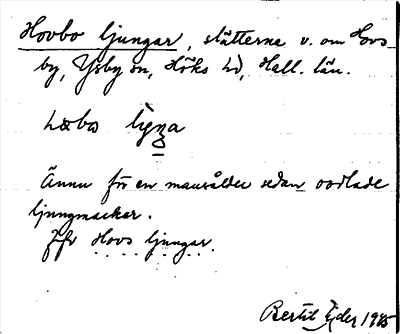 Hovbo ljungar, slätterna v. om Hovs-
by, Ysby sn, Höks hd, Hall. län.
Ännu för en mansålder sedan oodlade
ljungmarker.
Jfr Hovs ljungar.
Bertil Ejder 1945